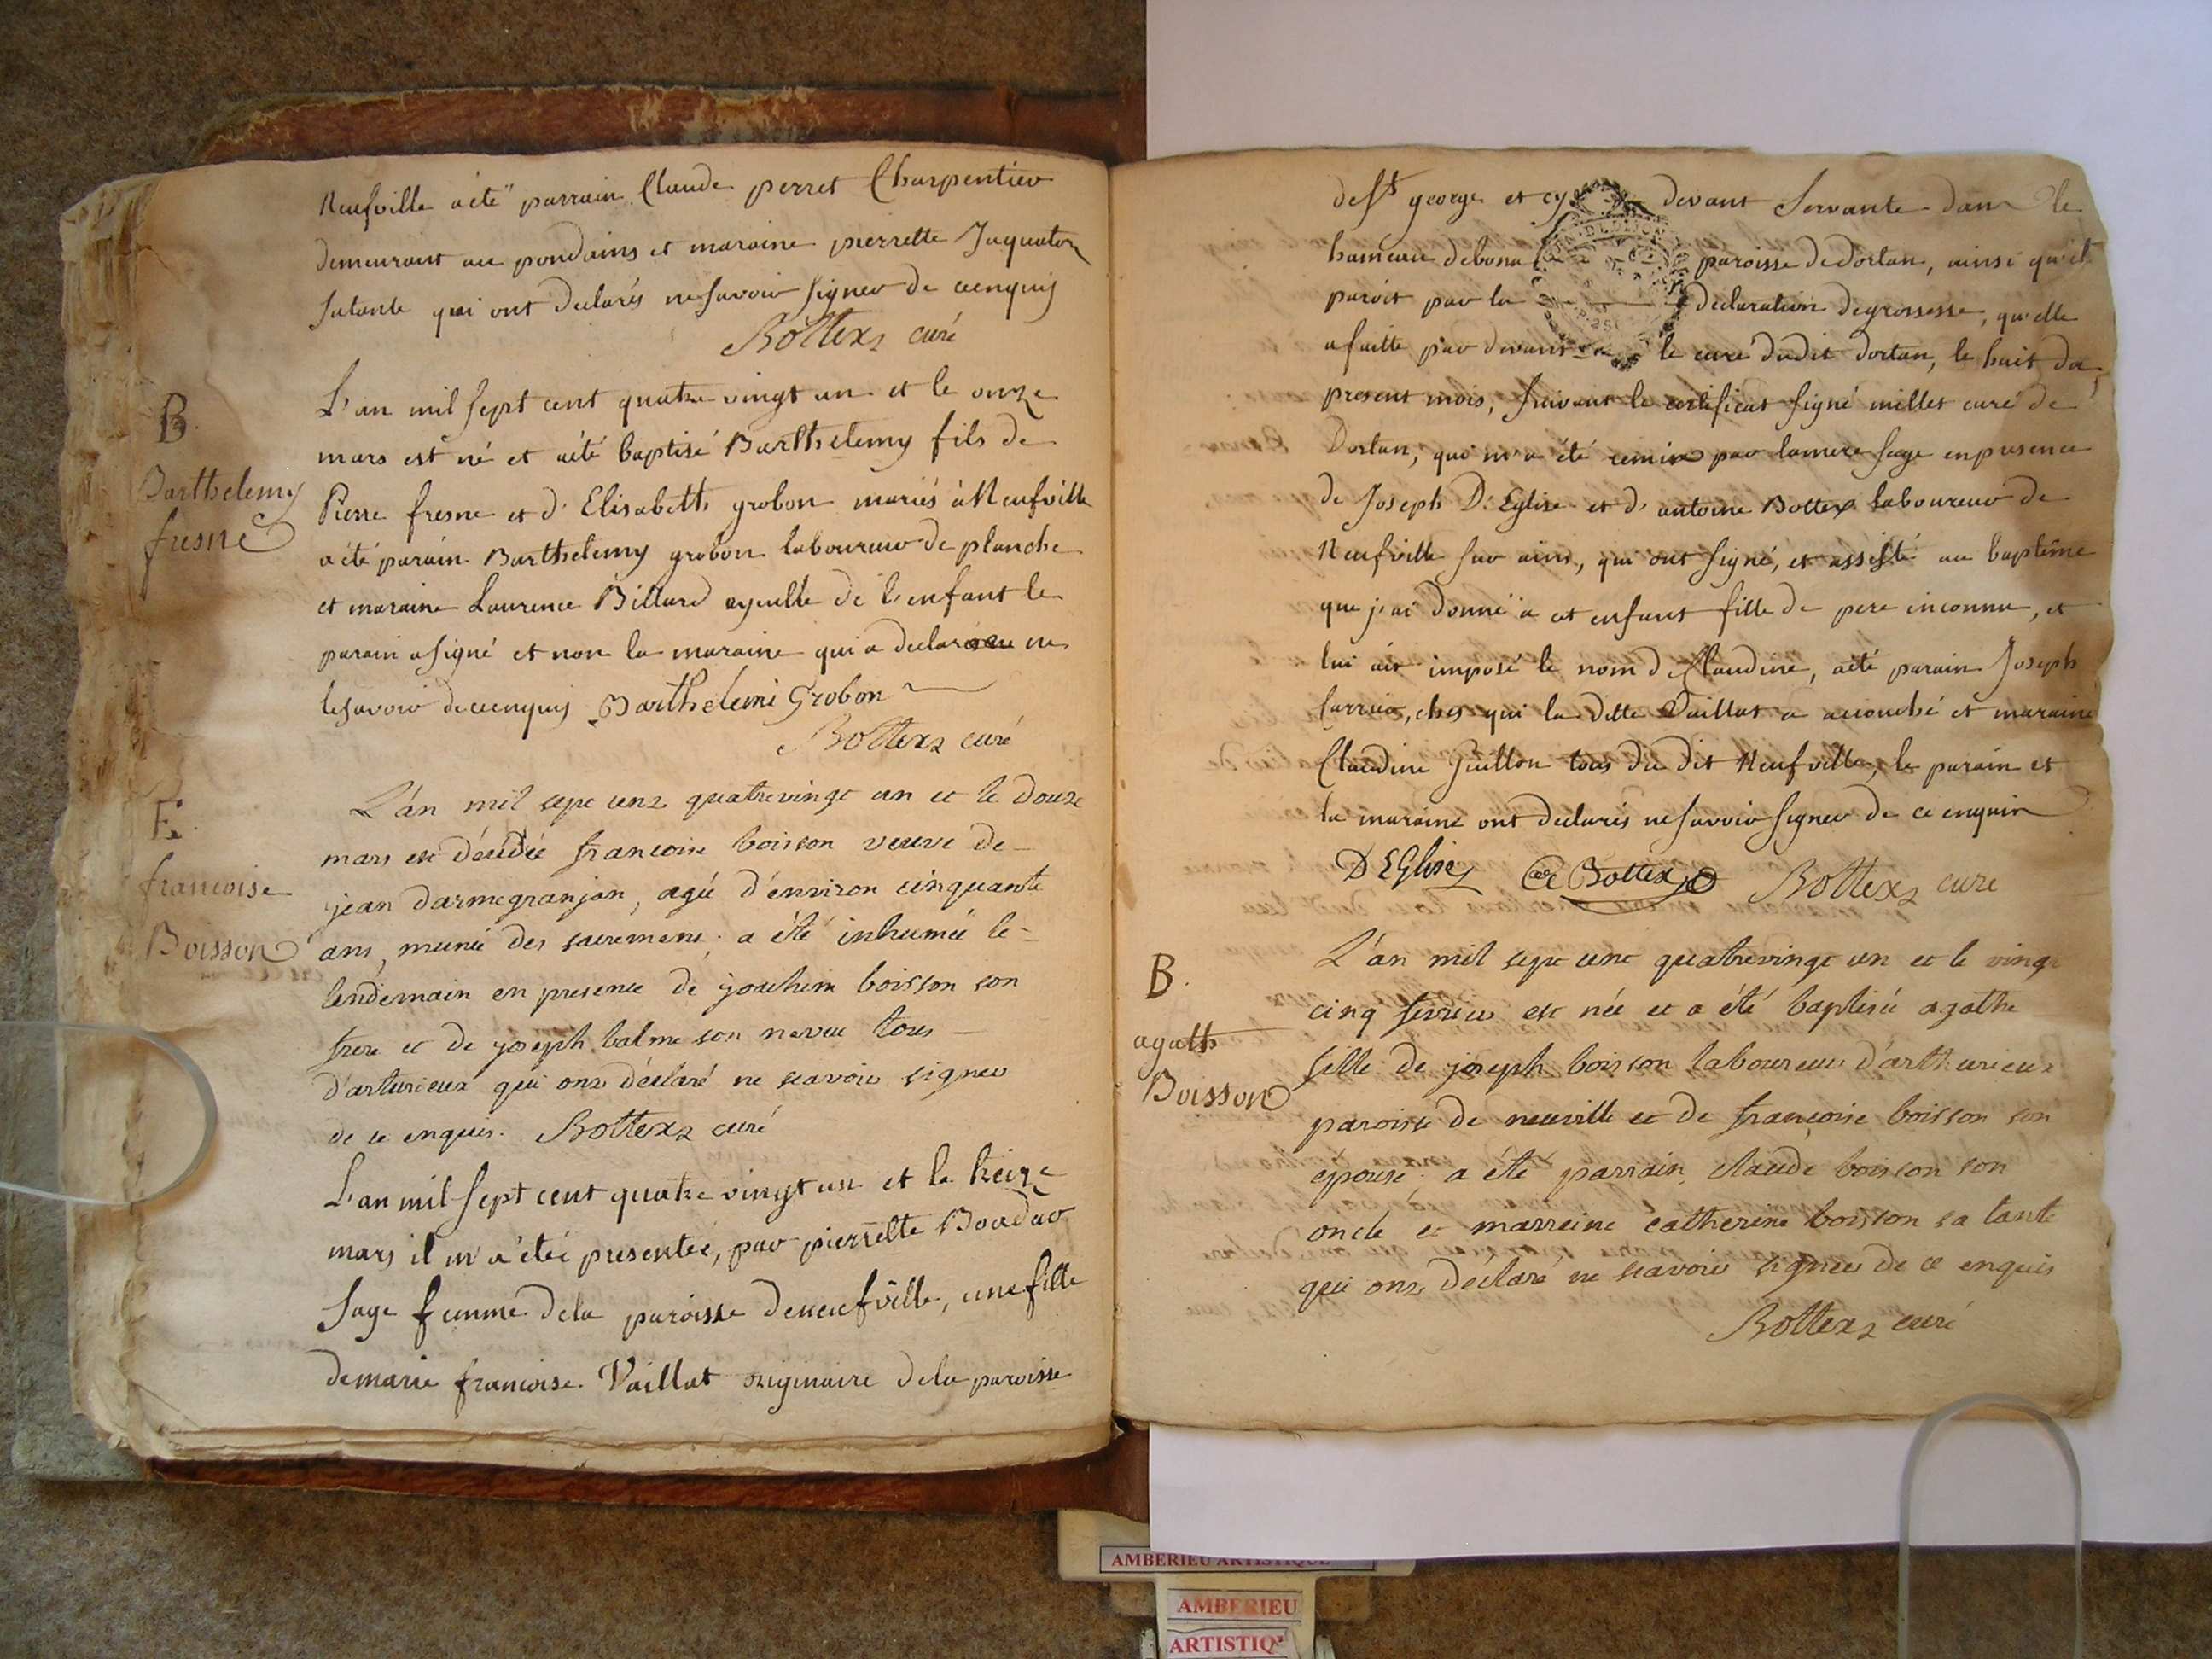 Neufville a été parrain Claude perret Charpentier
demeurant au pondains et maraine pierrette Jaquaton
sa tante qui ont declarés ne savoir signer de ce enquis
Bottex curé
B.
Barthelemy
fresne
L'an mil sept cent quatre vingt un et le onze
mars est né et a été baptisé Barthelemy fils de
Pierre fresne et d'Elisabeth grobon mariés à Neufville
a été parain Barthelemy grobon laboureur de planche
et maraine Laurence Billard ayeulle de l'enfant le
parain a signé et non la maraine qui a declaré ne
le savoir de ce enquis Barthélémi Grobon
Bottex curé
E.
francoise
Boisson
L'an mil sept cent quatrevingt un et le douze
mars est décédée francoise boisson veuve de
jean darmegranjon, agée d'environ cinquante
ans, munie des sacremens, a été inhumée le
lendemain en presence de joachim boisson son
frere et de joseph balme son neveu tous
d'arturieux qui ont déclaré ne scavoir signer
de ce enquis. Bottex curé
L'an mil sept cent quatre vingt un et le treize
mars il m'a étée presentée, par pierrette Boudar
sage femme de la paroisse de neufville, une fille
de marie francoise Vaillat originaire de la paroisse
de St george et cy devant servante dans le
hameau de bona paroisse de dortan, ainsi qu'il
paroit par la declaration de grossesse, qu'elle
a faitte par devant le curé dudit dortan, le huit du
present mois, suivant le certificat signé millet curé de
Dortan, qui m'a été remis par la mere sage en presence
de Joseph D'Eglise et d'antoine Bottex laboureur de
Neufville sur ains, qui ont signé, et assisté au baptême
que j'ai donné à cet enfant fille de pere inconnu, et
lui ai imposé le nom d Claudine, a été parain Joseph
, ches qui la ditte Vaillat a accouché et maraine
Claudine Guillon tous du dit Neufville, le parain et
la maraine ont declarés ne savoir signer de ce enquis
D EGlise Bottex Bottex curé
B.
agath
Boisson
L'an mil sept cent quatrevingt un et le vingt
cinq fevrier est née et a été baptisée agathe
fille de joseph boisson laboureur d'arthurieux
paroisse de neuville et de francoise boisson son
épouse; a été parrain claude boisson son
oncle et marreine catherine boisson sa tante
qui ont déclaré ne scavoir signer de ce enquis
Bottex curé
AMBERIEU ARTISTIQUE
AMBERIEU
ARTISTIQ